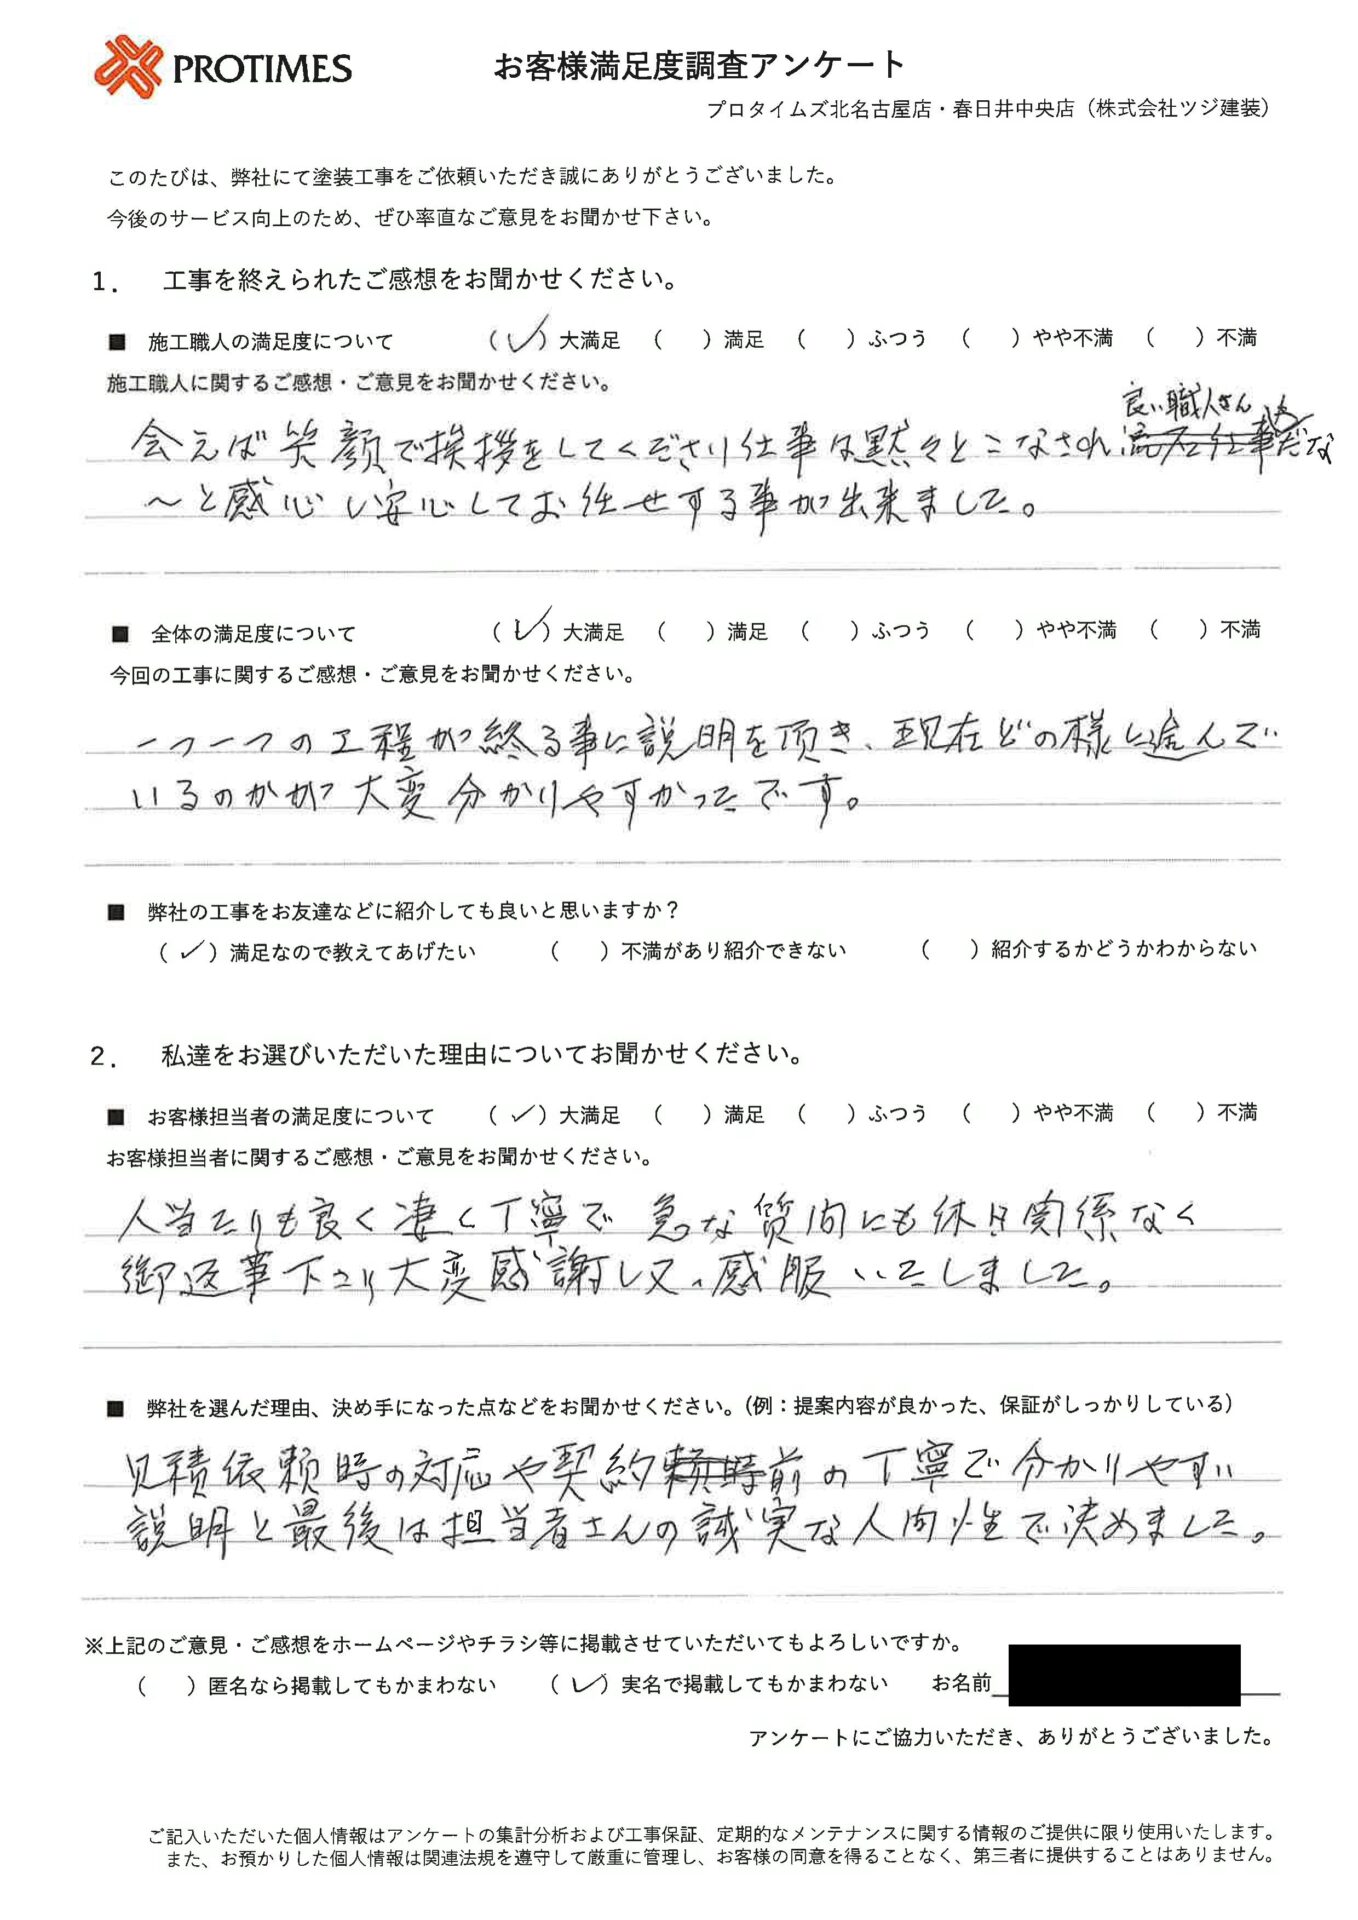 PROTIMES
お客様満足度調査アンケート
プロタイムズ北名古屋店・春日井中央店（株式会社ツジ建装）
このたびは、弊社にて塗装工事をご依頼いただき誠にありがとうございました。
今後のサービス向上のため、ぜひ率直なご意見をお聞かせ下さい。
1. 工事を終えられたご感想をお聞かせください。
■ 施工職人の満足度について （✓）大満足 （ ）満足 （ ）ふつう （ ）やや不満 （ ）不満
施工職人に関するご感想・ご意見をお聞かせください。
良い職人さん
会えば笑顔で挨拶をしてくださり仕事は黙々とこなされ、だな
〜と感心し安心してお任せする事が出来ました。
■ 全体の満足度について （✓）大満足 （ ）満足 （ ）ふつう （ ）やや不満 （ ）不満
今回の工事に関するご感想・ご意見をお聞かせください。
一つ一つの工程が終る事に説明を頂き、現在どの様に進んで
いるのかが大変分かりやすかったです。
■ 弊社の工事をお友達などに紹介しても良いと思いますか？
（✓）満足なので教えてあげたい （ ）不満があり紹介できない （ ）紹介するかどうかわからない
2. 私達をお選びいただいた理由についてお聞かせください。
■ お客様担当者の満足度について （✓）大満足 （ ）満足 （ ）ふつう （ ）やや不満 （ ）不満
お客様担当者に関するご感想・ご意見をお聞かせください。
人当たりも良く凄く丁寧で急な質問にも休日関係なく
御返事下さり大変感謝し又、感服いたしました。
■ 弊社を選んだ理由、決め手になった点などをお聞かせください。（例：提案内容が良かった、保証がしっかりしている）
見積依頼時の対応や契約前の丁寧で分かりやすい
説明と最後は担当者さんの誠実な人間性で決めました。
※上記のご意見・ご感想をホームページやチラシ等に掲載させていただいてもよろしいですか。
（ ）匿名なら掲載してもかまわない （✓）実名で掲載してもかまわない お名前
アンケートにご協力いただき、ありがとうございました。
ご記入いただいた個人情報はアンケートの集計分析および工事保証、定期的なメンテナンスに関する情報のご提供に限り使用いたします。
また、お預かりした個人情報は関連法規を遵守して厳重に管理し、お客様の同意を得ることなく、第三者に提供することはありません。